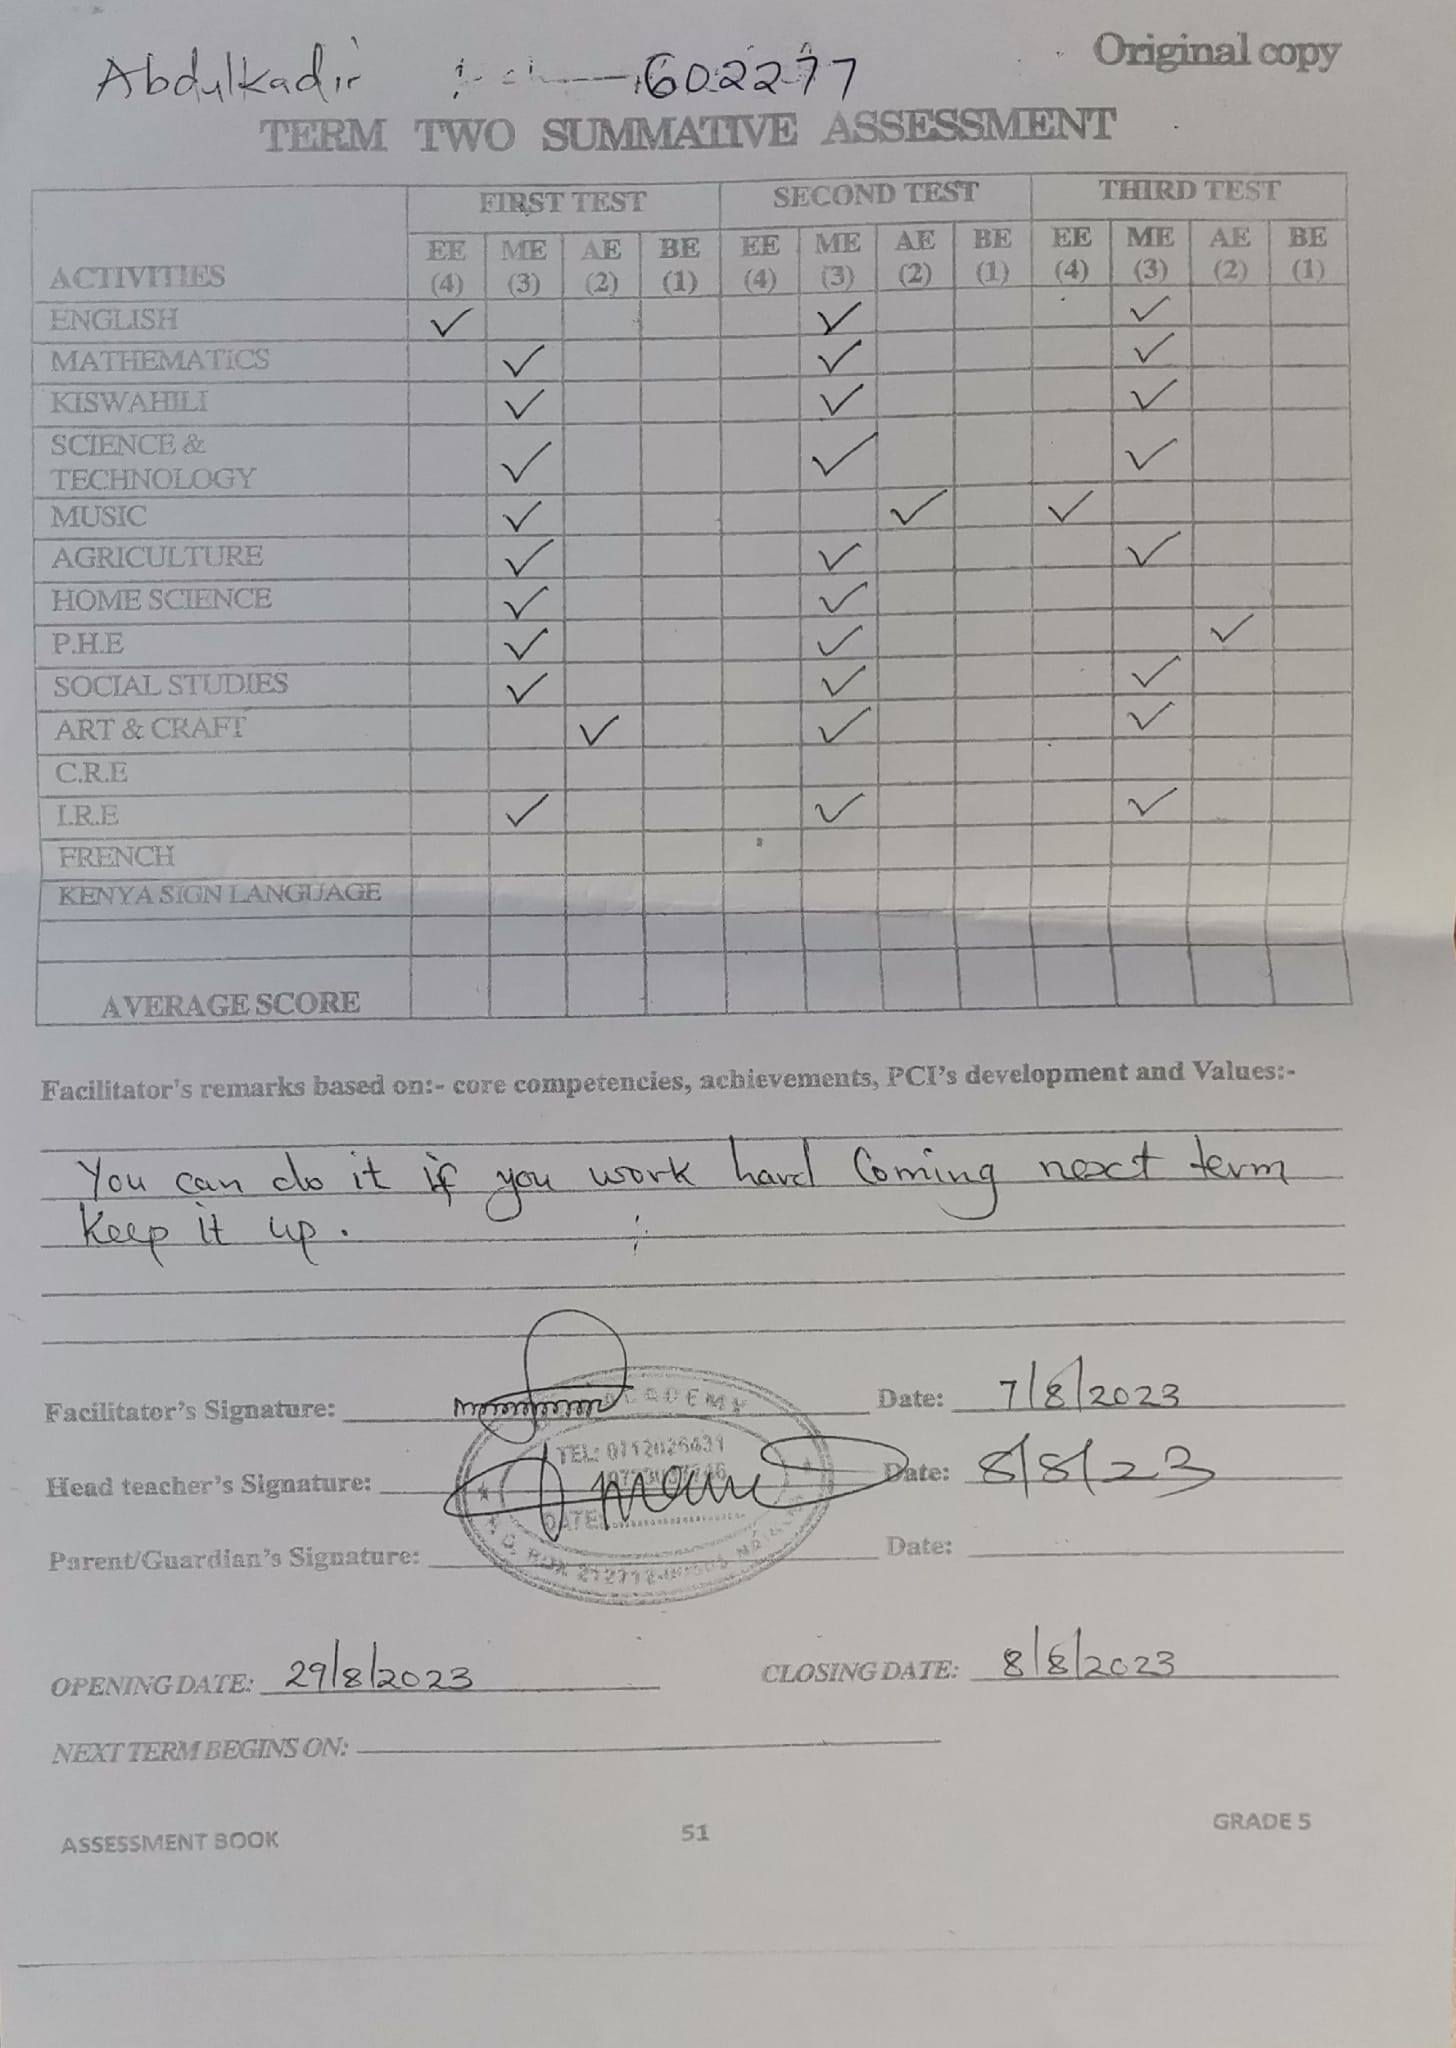 Original copy
Abdulkadir 602277
TERM TWO SUMMATIVE ASSESSMENT
ACTIVITIES FIRST TEST SECOND TEST THIRD TEST
EE ME AE BE EE ME AE BE EE ME AE BE
(4) (3) (2) (1) (4) (3) (2) (1) (4) (3) (2) (1)
ENGLISH ✓ ✓ ✓
MATHEMATICS ✓ ✓ ✓
KISWAHILI ✓ ✓ ✓
SCIENCE &
TECHNOLOGY ✓ ✓ ✓
MUSIC ✓ ✓ ✓
AGRICULTURE ✓ ✓ ✓
HOME SCIENCE ✓ ✓
P.H.E ✓ ✓ ✓
SOCIAL STUDIES ✓ ✓ ✓
ART & CRAFT ✓ ✓ ✓
C.R.E
I.R.E ✓ ✓ ✓
FRENCH
KENYA SIGN LANGUAGE
AVERAGE SCORE
Facilitator's remarks based on:- core competencies, achievements, PCI's development and Values:-
You can do it if you work hard Coming next term
Keep it up.
Facilitator's Signature: Date: 7/8/2023
ACADEMY
TEL: 0712026431
Head teacher's Signature: Date: 8/8/23
DATE
Parent/Guardian's Signature: Date:
BOX
OPENING DATE: 29/8/2023 CLOSING DATE: 8/8/2023
NEXT TERM BEGINS ON:
ASSESSMENT BOOK 51 GRADE 5